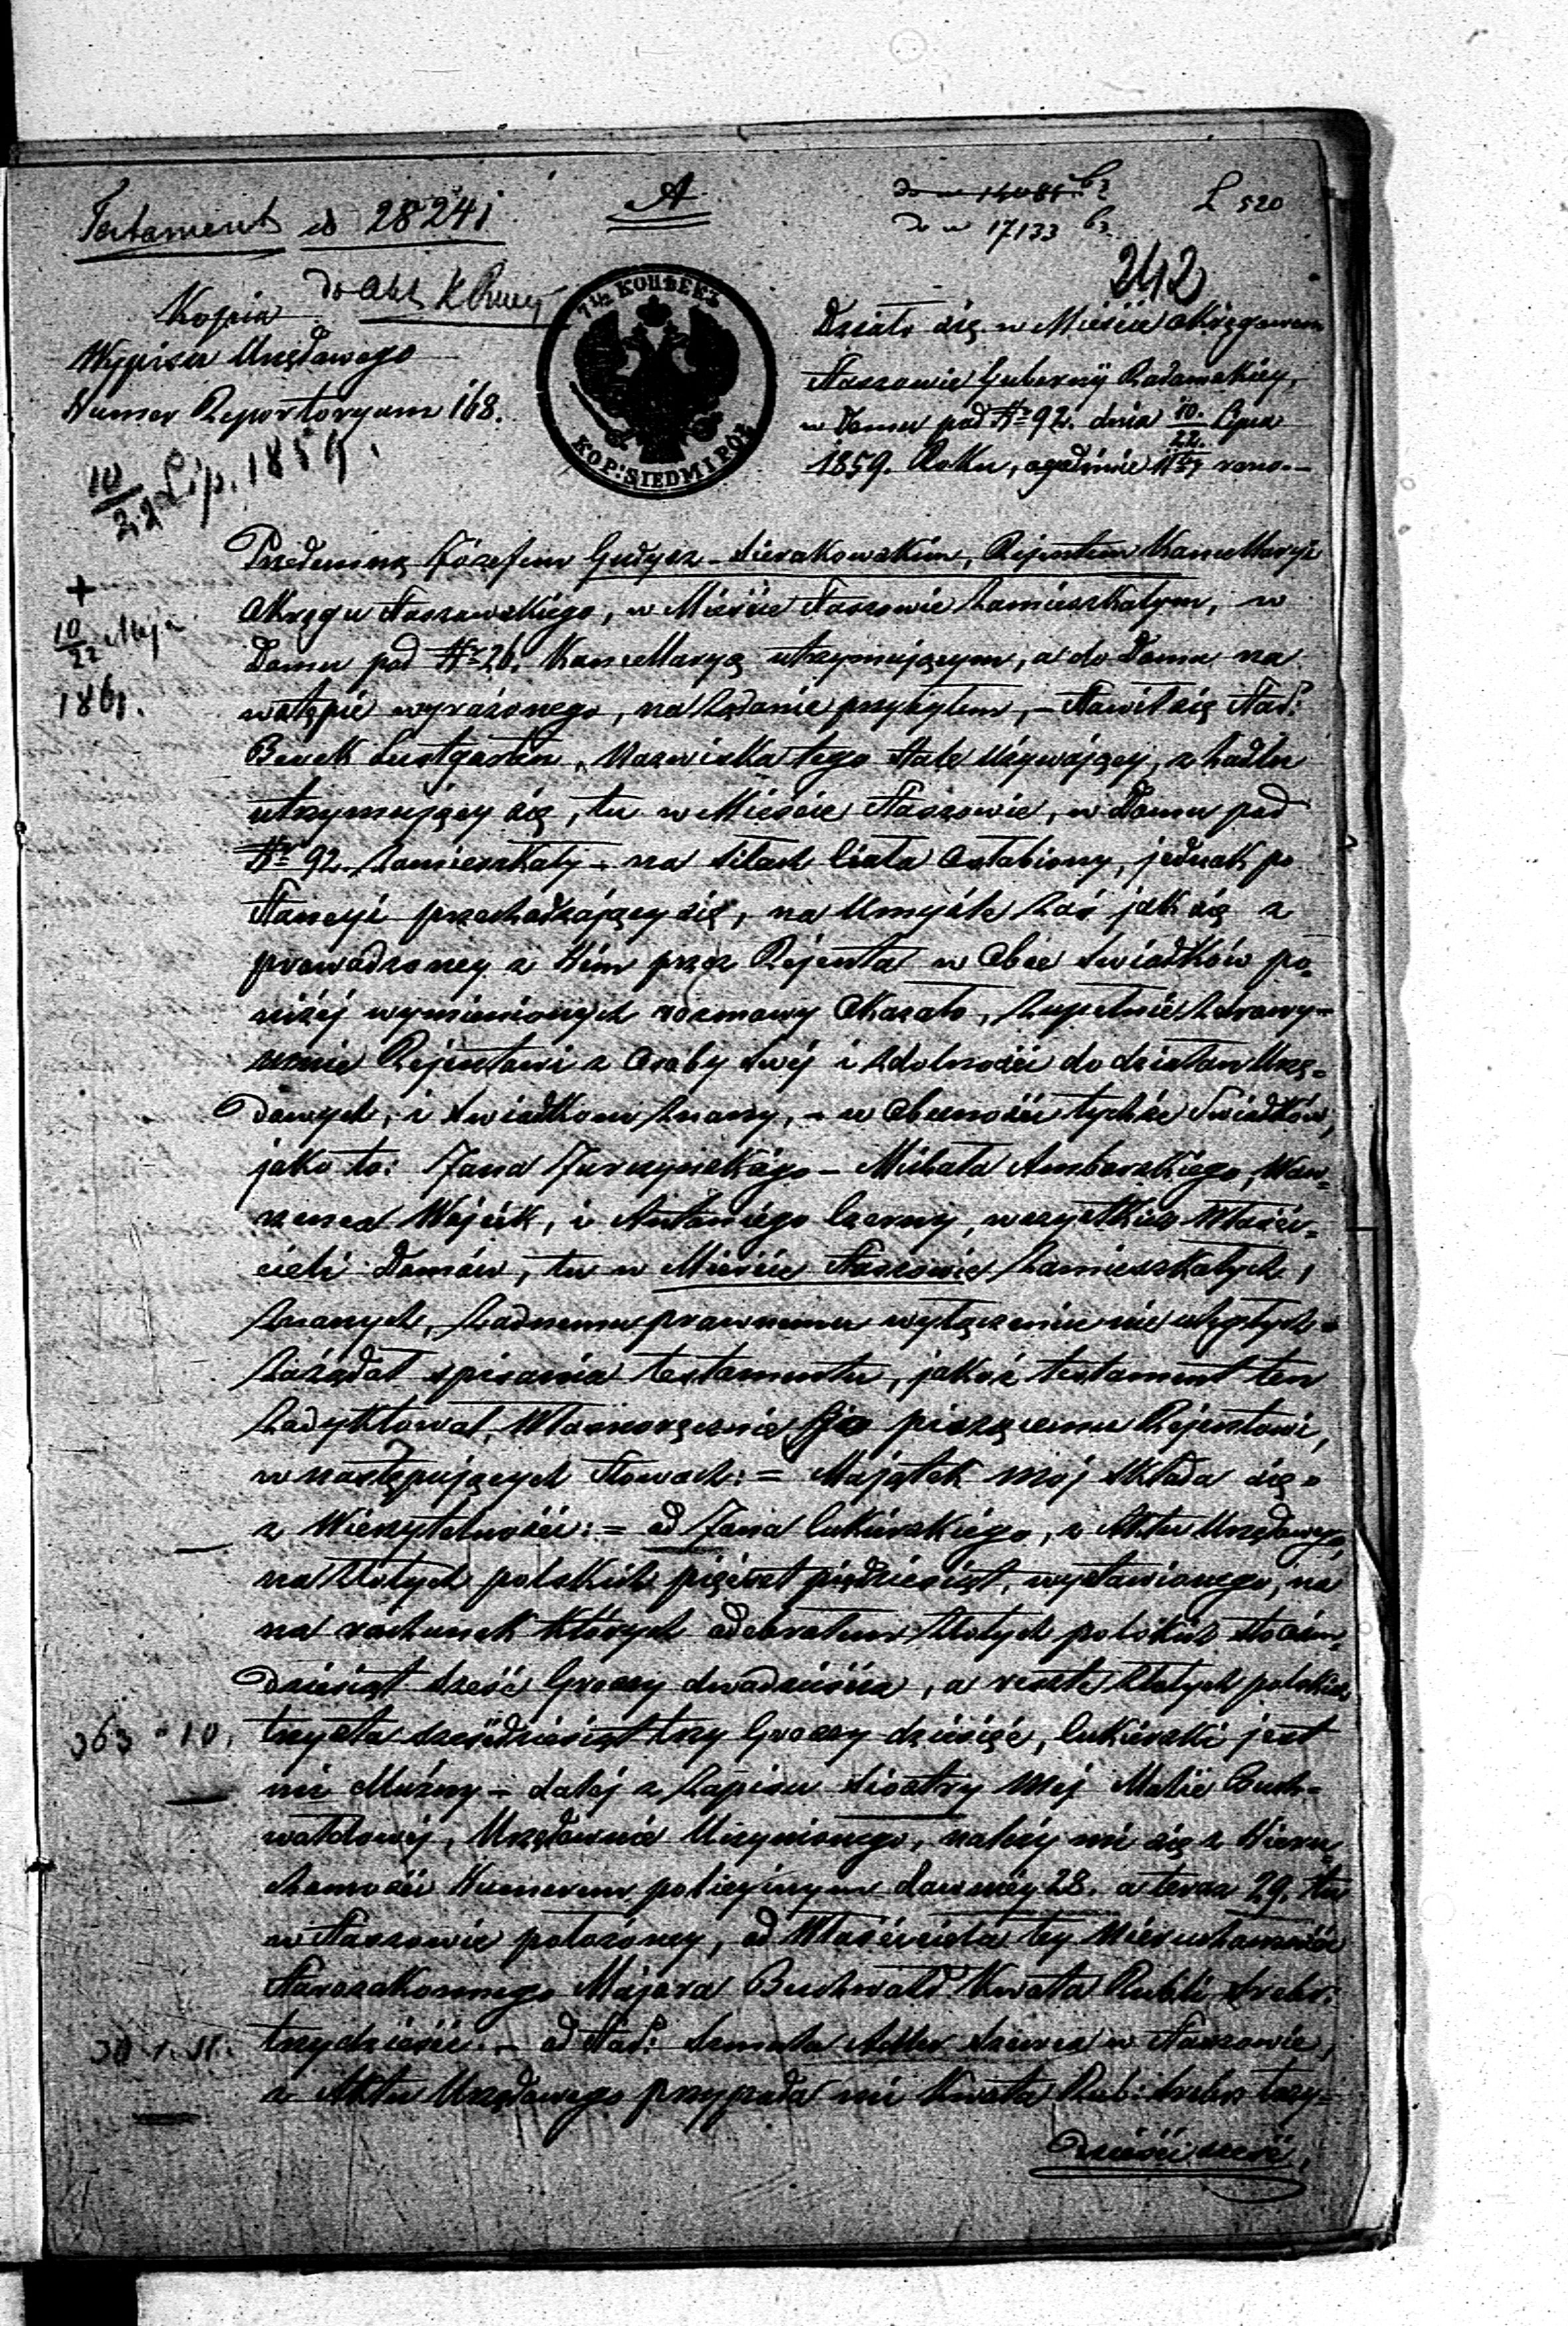 Testament d 28241
A
do n 17133 b2
L 520
242
do Akt
Kopia
Wypisu Urzędowego
Numer Repertoryum 168.
10/22 Lip. 1859.
7½ КОПѢЕКЪ
KOP: SIEDM I PÓŁ
Działo się w Mieście Okręgowem
Staszowie Gubernyi Radomskiey,
w Domu pod Nr 92. dnia 10./22. Lipca
1859. Roku, o godzinie rano.–
Przedemną Józefem Gudysz-Sierakowskim, Rejentem Kancellaryi
Okręgu Staszowskiego, w Mieście Staszowie Zamieszkałym, w
Domu pod Nr 26. Kancellaryą utrzymującym, a do Domu na
wstępie wyrażonego, na żądanie przybyłem,– Stawił się Staż:
Berek Lustgarten, Nazwiska tego stale używający, z handlu
utrzymujący się, tu w Mieście Staszowie, w Domu pod
Nr 92. Zamieszkały – na siłach Ciała Osłabiony, jednak po
Stancyi przechadzający się, na Umyśle zaś jak się z
prowadzoney z Nim przez Rejenta w Obec Swiadków po-
niżéj wymienionych rozmowy Okazało, zupełnie zdrowy–
Rejentowi z Osoby swéj i zdolności do działań Urzę-
dowych, i Swiadkom znany, – w Obecności tychże Swiadków,
jako to: Jana Jurczyńskiego – Michała Amborskiego, Waw-
rzeńca Wojcik, i Antoniego Czerny, wszystkich Właści-
cieli Domów, tu w Mieście Staszowie Zamieszkałych,
Znanych, żadnemu prawnemu wyłączeniu nie uległych –
Zażądał spisania testamentu, jakoż testament ten
Zadyktował, Własnoręcznie go piszącemu Rejentowi,
w następujących Słowach: = Majątek mój składa się
z Wierzytelności: = od Jana Cukierskiego, z Aktu Urzędowego,
na Złotych polskich pięćset pięćdziesiąt, wystawionego, na
na rachunek których odebrałem Złotych polskich sto ośm-
dziesiąt sześć Groszy dwadzieścia, a resztę Złotych polskich
363 " 10. trzysta sześćdziesiąt trzy Groszy dziesięć, Cukierski jest
mi dłużny – daléj z zapisu siostry méj Malie Buch-
waldowéj, Urzędownie Uczynionego, należy mi się z Nieru-
chomości Numerem policyinym dawniéj 28. a teraz 29. tu
w Staszowie położoney, od Właściciela tey Nieruchomości
Starozakonnego Majora Buchwald Kwota Rubli srebr:
trzydzieści.– od Staż: Szmula Adler szewca w Staszowie,
z Aktu Urzędowego przypada mi Kwota Rub: srebr trzy-
dzieści sześć,
+
10/22 Maja
1861.